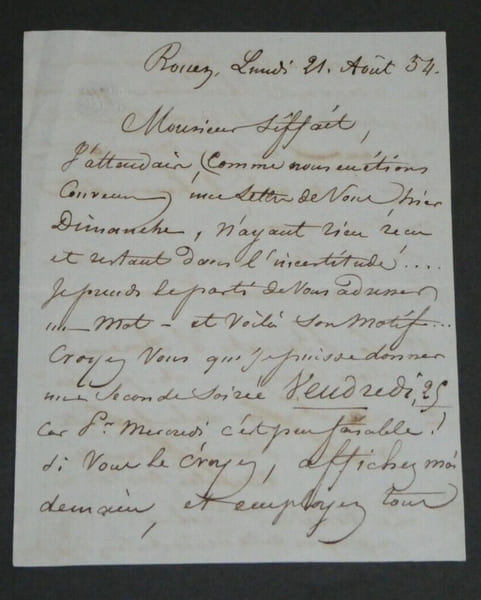 Rouen, Lundi 21. Août 54.
Monsieur Siffait,
J'attendais (Comme nous en étions
Convenu) une Lettre de Vous hier
Dimanche, n'ayant rien reçu
et restant dans l'incertitude! ....
Je prends le parti de Vous adresser
un Mot - et Voilà Son Motif...
Croyez Vous que je puisse donner
une seconde Soirée Vendredi, 25
Car Pr. Mercredi c'est peu faisable!
Si Vous le Croyez, affichez moi
demain, et employez tous